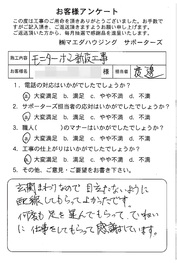 お客様アンケート
この度は工事のご用命を頂きありがとうございました。お手数です
がご記入頂き、ご返送頂きますようお願い申し上げます。
ご返送頂いた方から、毎月抽選で感謝品を進呈致します。
㈱マエダハウジング サポーターズ
施工内容 モニターホン新設工事
お客様名 様 担当者 渡邊
1. 電話の対応はいかがでしたでしょうか?
a. 大満足 b. 満足 c. やや不満 d. 不満
2. サポーターズ担当者の対応はいかがでしたでしょうか?
a. 大満足 b. 満足 c. やや不満 d. 不満
3. 職人( )のマナーはいかがでしたでしょうか?
a. 大満足 b. 満足 c. やや不満 d. 不満
4. 工事の仕上がりはいかがでしたでしょうか?
a. 大満足 b. 満足 c. やや不満 d. 不満
5. その他、ご意見・ご要望をお書き下さい。
玄関まわりなので 目立たないように
配線してもらってよかったです。
何度も 足を運んでもらって、ていねい
に仕事をしてもらって 感謝しています。